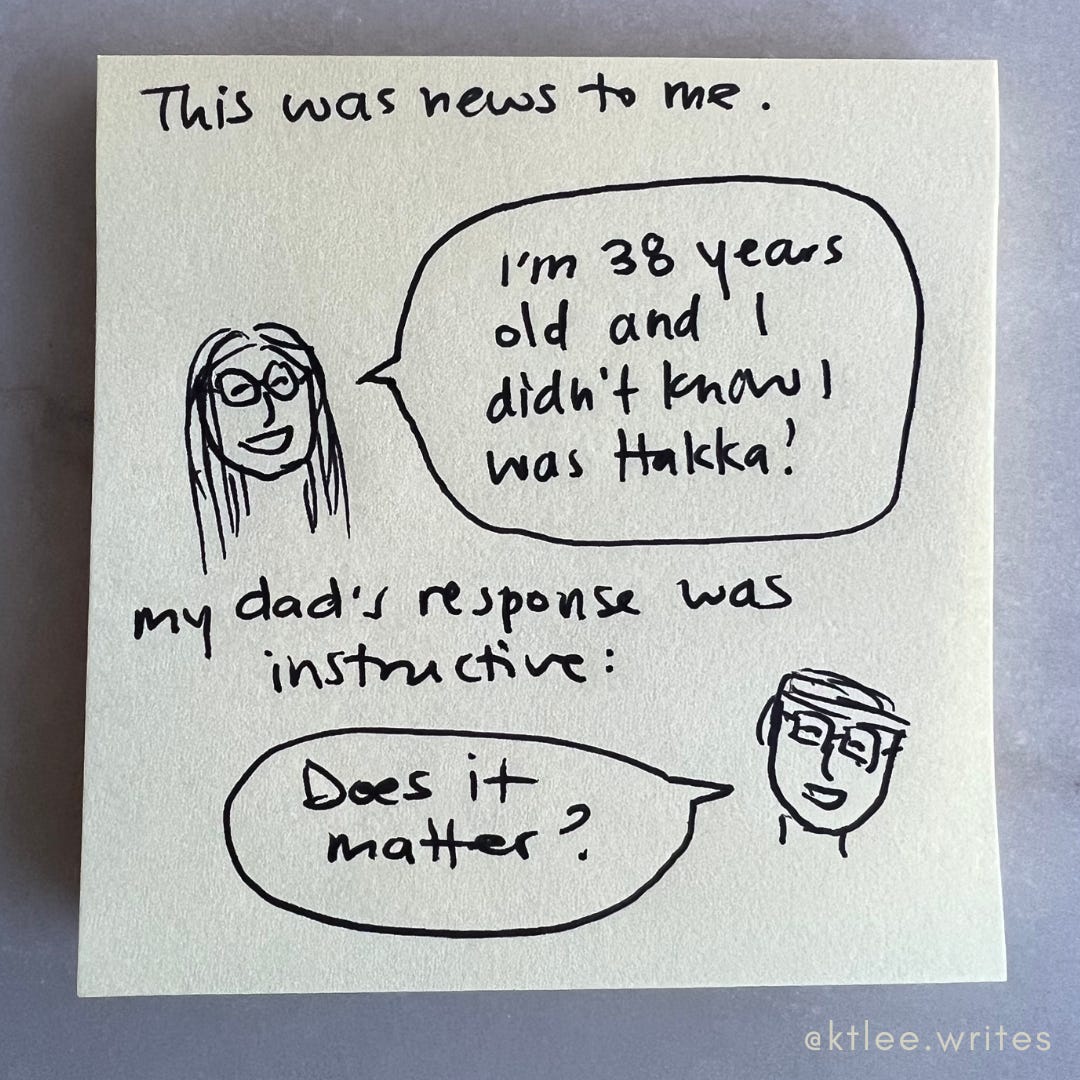 This was news to me.
I'm 38 years
old and I
didn't know I
was Hakka!
my dad's response was
instructive:
Does it
matter?
@ktlee.writes